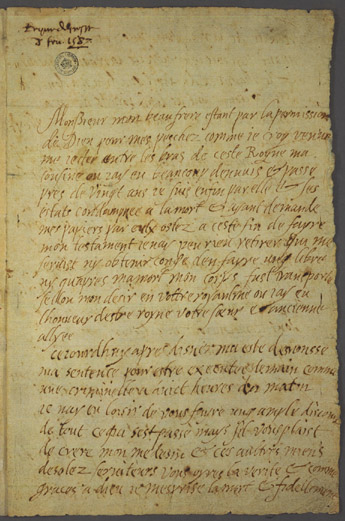 8 feu. 158
Monsieur mon beau frere estant par la permission
de Dieu pour mes peschez comme ie croy venue
me ietter entre les bras de ceste Royne ma
cousine ou iay eu beaucoup dennuis & passe
pres de vingt ans ie suis enfin par elle & ses
estats condampnee a la mort & ayant demande
mes papiers par eulx ostez a ceste fin de fayre
mon testament ie nay peu rien retirer qui me
seruist ny obtenir conge den fayre ung libre
ny quapres ma mort mon corps fust transporte
sellon mon desir en votre royaulme ou iay eu
lhonneur destre royne votre soeur & ancienne
allyee
ceiourdhuy apres disner ma este denonsse
ma sentence pour estre executee demain comme
une criminelle a huict heures du matin
ie nay eu loisir de vous fayre ung ample discours
de tout ce qui sest passe mays sil vous plaict
de crere mon medesin & ces aultres miens
desolez seruiteurs vous oyres la verite & comme
graces a dieu ie mesprise la mort & fidellement